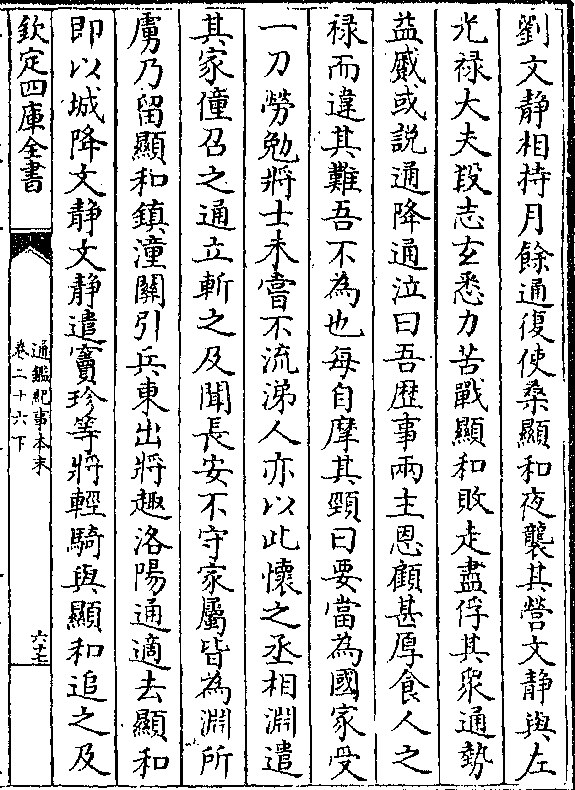 劉文静相持月餘通復使桑顯和夜襲其營文静與左
光禄大夫段志玄悉力苦戰顯和敗走盡俘其衆通勢
益蹙或説通降通泣曰吾歴事兩主恩顧甚厚食人之
禄而違其難吾不為也每自摩其頸曰要當為國家受
一刀勞勉將士未嘗不流涕人亦以此懷之丞相淵遣
其家僮召之通立斬之及聞長安不守家屬皆為淵所
虜乃留顯和鎮潼關引兵東出將趣洛陽通適去顯和
即以城降文静文静遣竇珍等將輕騎與顯和追之及
欽定四庫全書
通鑑紀事本末
卷二十六下